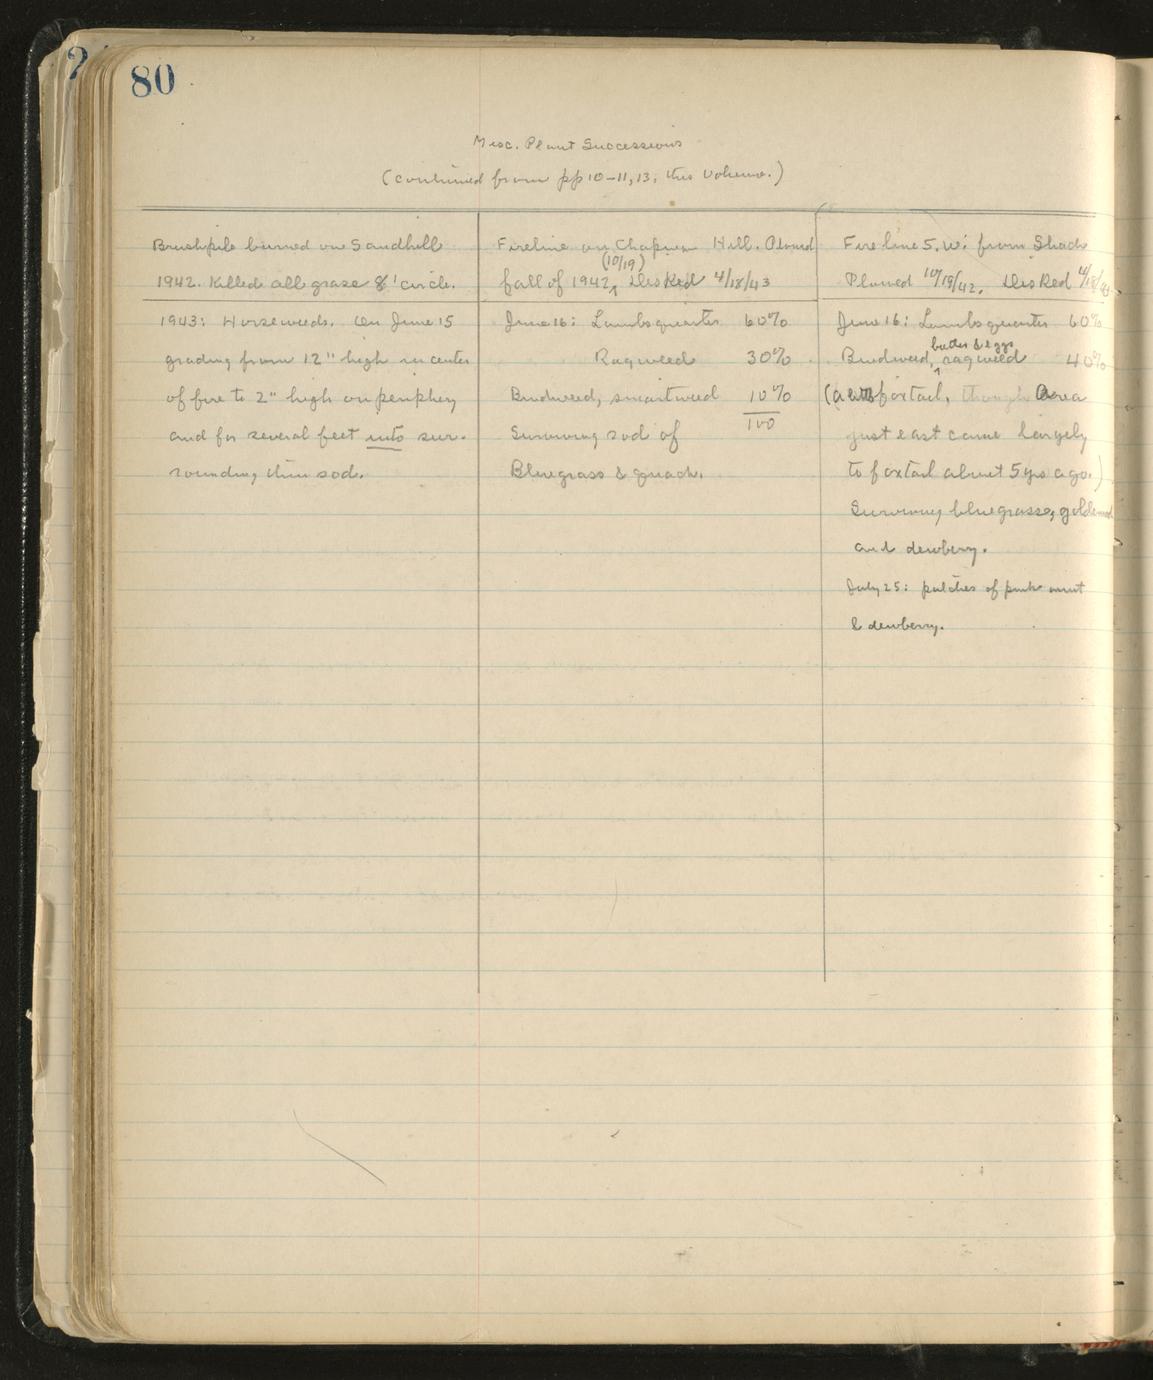 80
Misc. Plant Successions
(continued from pp 10-11, 13, this volume.)
Brushpile burned on Sandhill
1942. Killed all grass 8' circle.
1943: Horseweeds. On June 15
grading from 12" high in center
of fire to 2" high on periphery
and for several feet into sur-
rounding thin sod.
Fireline on Chapman Hill. Plowed
(10/19)
fall of 1942, Disked 4/18/43
June 16: Lambsquarter 60%
Ragweed 30%
Bindweed, smartweed 10%
100
Surviving sod of
Bluegrass & quack.
Fire line S.W. from Shack
Plowed 10/19/42. Disked 4/18/43
June 16: Lambsquarter 60%
butter & eggs
Bindweed, ragweed 40%
foxtail, though area
just east came largely
to foxtail about 5 yrs ago.)
Surviving bluegrass, goldenrod
and dewberry.
July 25: patches of pink mint
& dewberry.